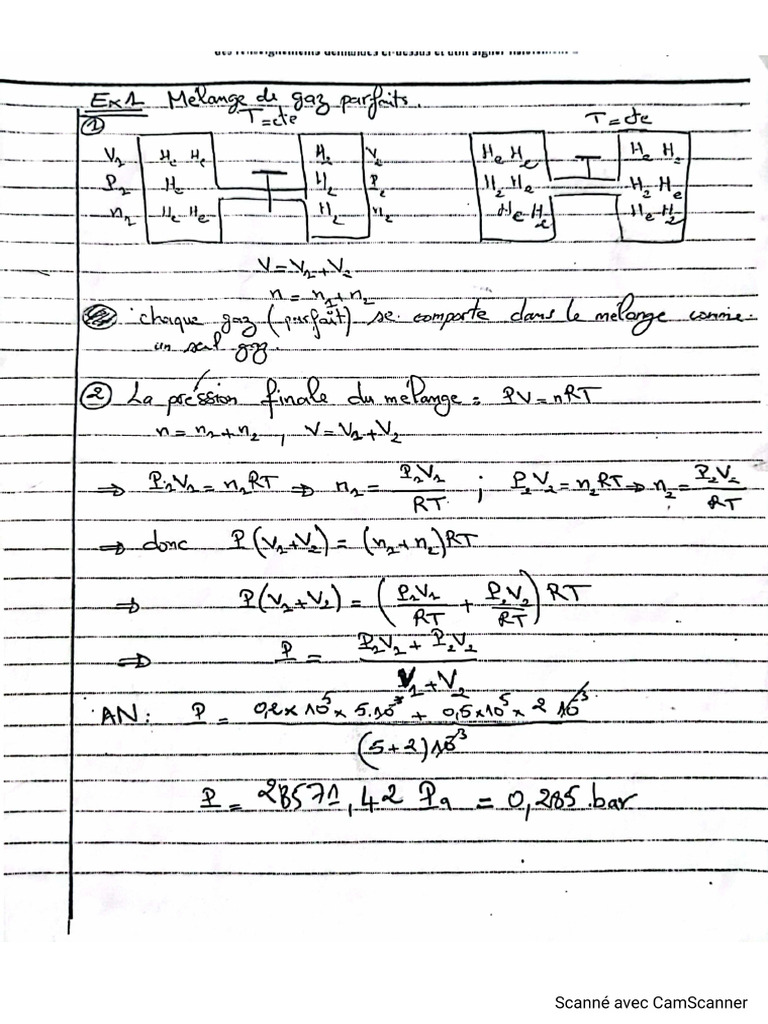 des renseignements demandés ci-dessus et doit signer
Ex1 Mélange de gaz parfaits.
① T=cte T=cte
V1 He He H2 V2 He He H2 H2
P1 He H2 P2 H2 He H2 He
n1 He He H2 n2 He H2 He H2
V=V1+V2
n=n1+n2
chaque gaz (parfait) se comporte dans le mélange comme
un seul gaz.
② La préssion finale du mélange = PV=nRT
n=n1+n2, V=V1+V2
⇒ P1V1=n1RT ⇒ n1= P1V1/RT ; P2V2=n2RT ⇒ n2=P2V2/RT
⇒ donc P(V1+V2)=(n1+n2)RT
⇒ P(V1+V2)=(P1V1/RT + P2V2/RT) RT
⇒ P = (P1V1 + P2V2)/(V1+V2)
AN: P = (0,2×10⁵ × 5.10⁻³ + 0,5×10⁵ × 2 10⁻³)/((5+2)10⁻³)
P = 28571,42 Pa = 0,285 bar
Scanné avec CamScanner